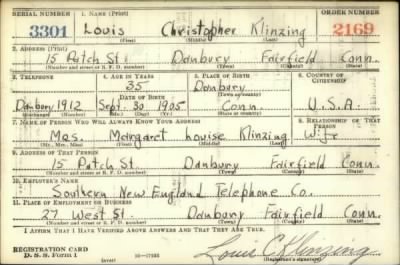 SERIAL NUMBER 1. NAME (Print) ORDER NUMBER
3301 Louis Christopher Klinzing 2169
(First) (Middle) (Last)
2. ADDRESS (Print)
15 Patch St. Danbury Fairfield Conn.
(Number and street or R. F. D. number) (Town) (County) (State)
3. TELEPHONE 4. AGE IN YEARS 5. PLACE OF BIRTH 6. COUNTRY OF CITIZENSHIP
35 Danbury
DATE OF BIRTH (Town or county)
Danbury 1912 Sept. 30 1905 Conn. U.S.A.
(Exchange) (Number) (Mo.) (Day) (Yr.) (State or country)
7. NAME OF PERSON WHO WILL ALWAYS KNOW YOUR ADDRESS 8. RELATIONSHIP OF THAT PERSON
Mrs. Margaret Louise Klinzing Wife
(Mr., Mrs., Miss) (First) (Middle) (Last)
9. ADDRESS OF THAT PERSON
15 Patch St. Danbury Fairfield Conn.
(Number and street or R. F. D. number) (Town) (County) (State)
10. EMPLOYER'S NAME
Southern New England Telephone Co.
11. PLACE OF EMPLOYMENT OR BUSINESS
27 West St. Danbury Fairfield Conn.
(Number and street or R. F. D. number) (Town) (County) (State)
I AFFIRM THAT I HAVE VERIFIED ABOVE ANSWERS AND THAT THEY ARE TRUE.
REGISTRATION CARD Louis C Klinzing
D. S. S. Form 1 (over) 16—17105 (Registrant's signature)